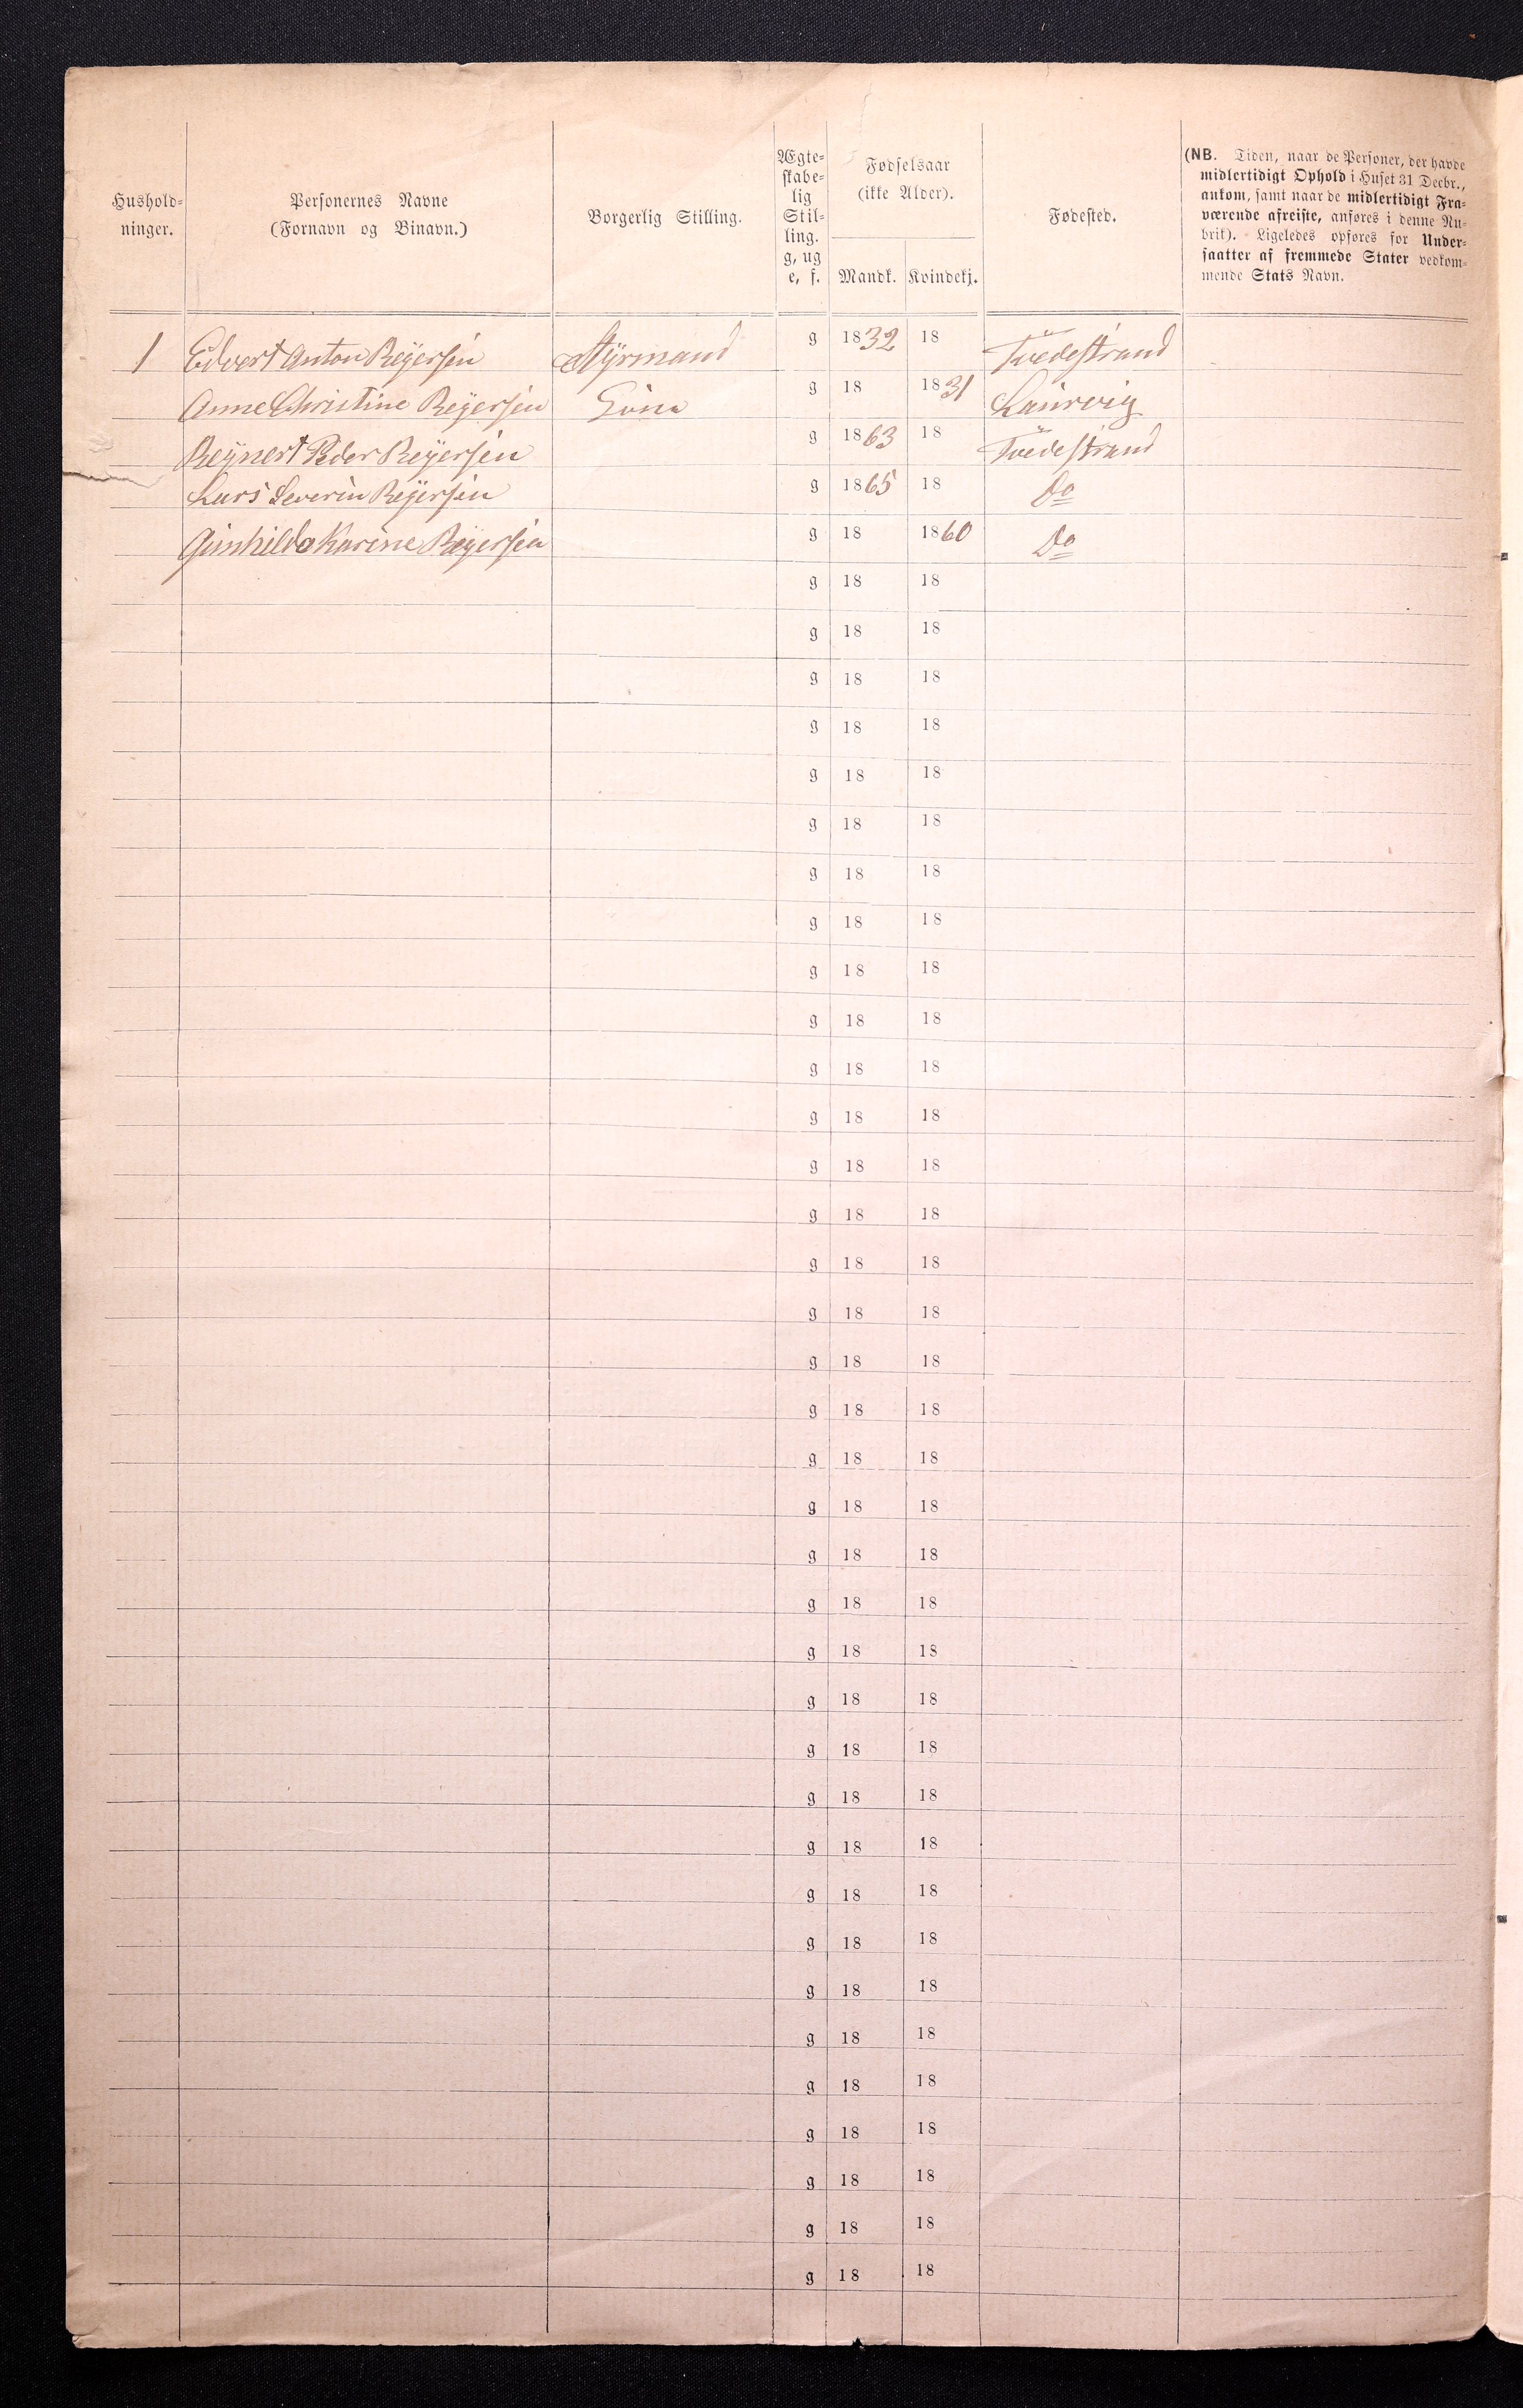 Hushold-
ninger.
Personernes Navne
(Fornavn og Binavn.)
Borgerlig Stilling.
Ægte-
skabe-
lig
Stil-
ling.
g, ug
e, f.
Fødselsaar
(ikke Alder).
Mandk. Kvindekj.
Fødested.
(NB. Tiden, naar de Personer, der havde
midlertidigt Ophold i Huset 31 Decbr.,
ankom, samt naar de midlertidigt Fra-
værende afreiste, anføres i denne Ru-
brik). Ligeledes opføres for Under-
saatter af fremmede Stater vedkom-
mende Stats Navn.
1 Edvert Anton Reyersen Styrmand g 1832 18 Tvedestrand
Anne Christine Reyersen g 18 1831 Laurvig
Reynert Peder Reyersen g 1863 18 Tvedestrand
Lars Severin Reyersen g 1865 18 Do
Gunhilda Karine Reyersen g 18 1860 Do
g 18 18
g 18 18
g 18 18
g 18 18
g 18 18
g 18 18
g 18 18
g 18 18
g 18 18
g 18 18
g 18 18
g 18 18
g 18 18
g 18 18
g 18 18
g 18 18
g 18 18
g 18 18
g 18 18
g 18 18
g 18 18
g 18 18
g 18 18
g 18 18
g 18 18
g 18 18
g 18 18
g 18 18
g 18 18
g 18 18
g 18 18
g 18 18
g 18 18
g 18 18
g 18 18
g 18 18